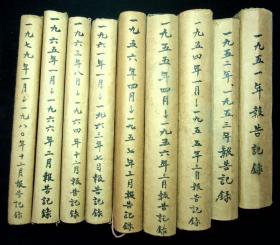 一九五一年報告記錄
一九五二年一九五三年報告記錄
一九五四年一月—一九五五年三月報告記錄
一九五五年四月—一九五六年三月報告記錄
一九五六年四月—一九五七年三月報告記錄
一九六一年一月—一九六二年七月報告記錄
一九六三年八月—一九六四年十二月報告記錄
一九六五年一月—一九六六年三月報告記錄
一九七九年一月—一九八〇年十二月報告記錄